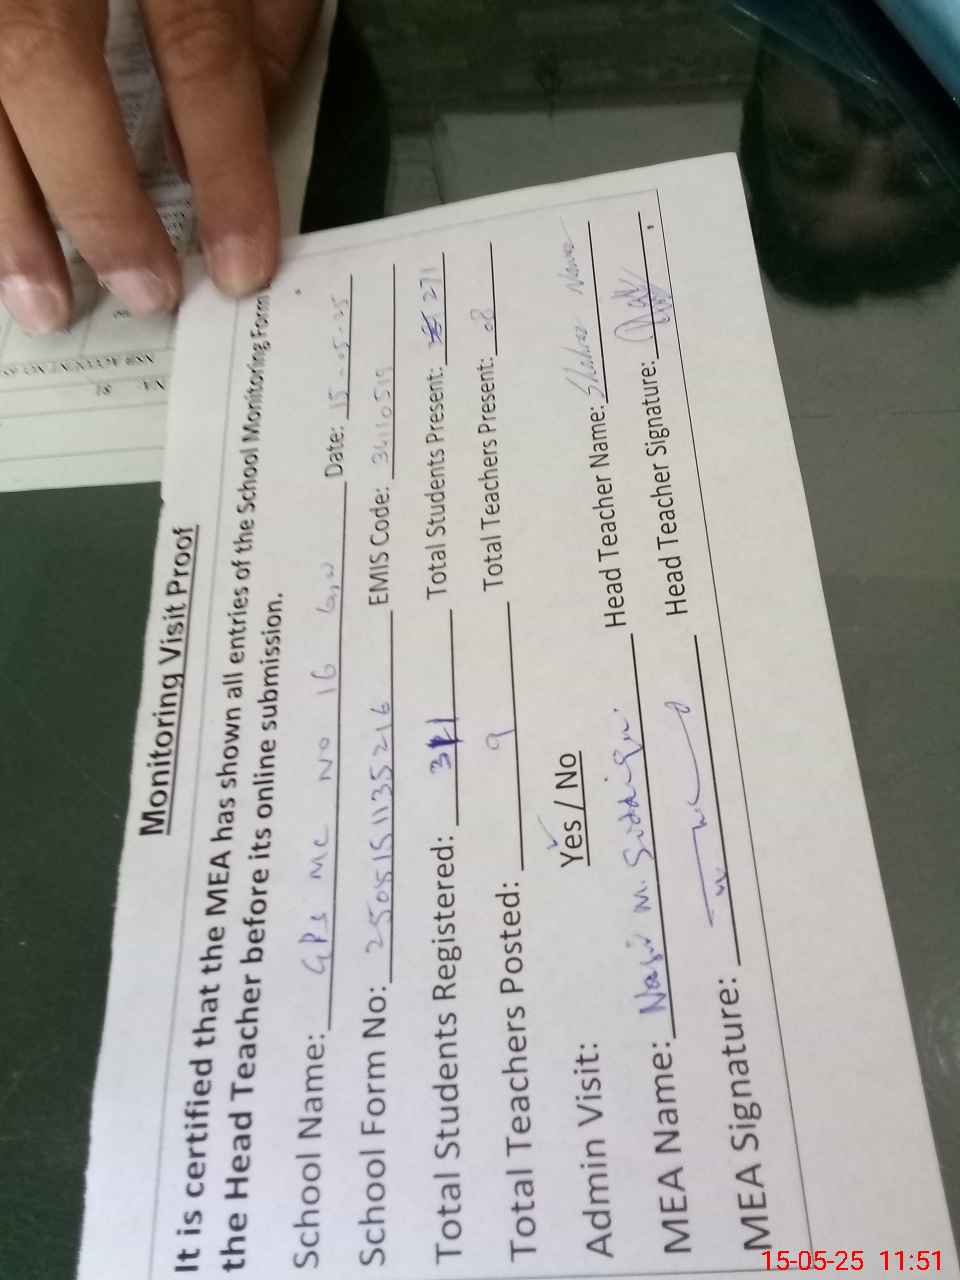 Monitoring Visit Proof
It is certified that the MEA has shown all entries of the School Monitoring Form
the Head Teacher before its online submission.
School Name: GPS MC NO 16 Date: 15-05-25
School Form No: 2505151135216 EMIS Code: 34110519
Total Students Registered: Total Students Present: 271
Total Teachers Posted: 9 Total Teachers Present: 08
Admin Visit: Yes / No Head Teacher Name: Nawaz
MEA Name: Nasir M. Siddiqui Head Teacher Signature:
MEA Signature:
NSB ACCOUNT NO
15-05-25 11:51